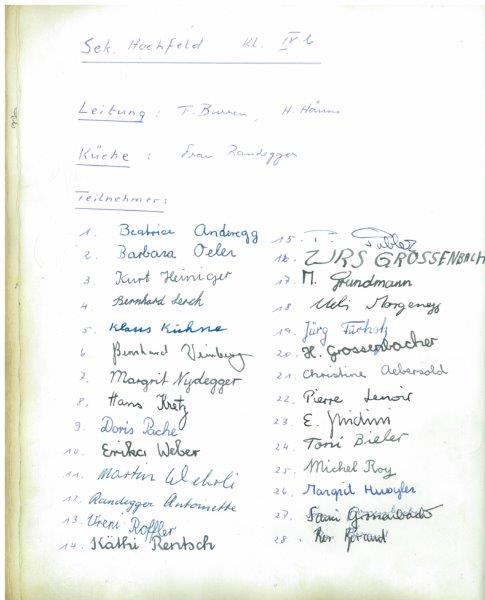 Sek. Hochfeld Kl. IV b
Leitung : F. Burren, H. Hänni
Küche : Frau Randegger
Teilnehmer:
1. Beatrice Anderegg
2. Barbara Oeler
3. Kurt Heiniger
4. Bernhard Lerch
5. Klaus Kühne
6 Bernhard
7. Margrit Nydegger
8. Hans Kretz
9. Doris Pache
10. Erika Weber
11. Martin Wehrli
12. Randegger Antoinette
13. Vreni Roffler
14. Käthi Rentsch
15. P. Tabler
16. URS GROSSENBACH
17. M. Grundmann
18 Ueli Morgenegg
19. Jürg Fürholz
20. H. Grossenbacher
21. Christine Aebersold
22. Pierre Lenoir
23. E.
24. Toni Bieler
25. Michel Roy
26. Margrit
27.
28.